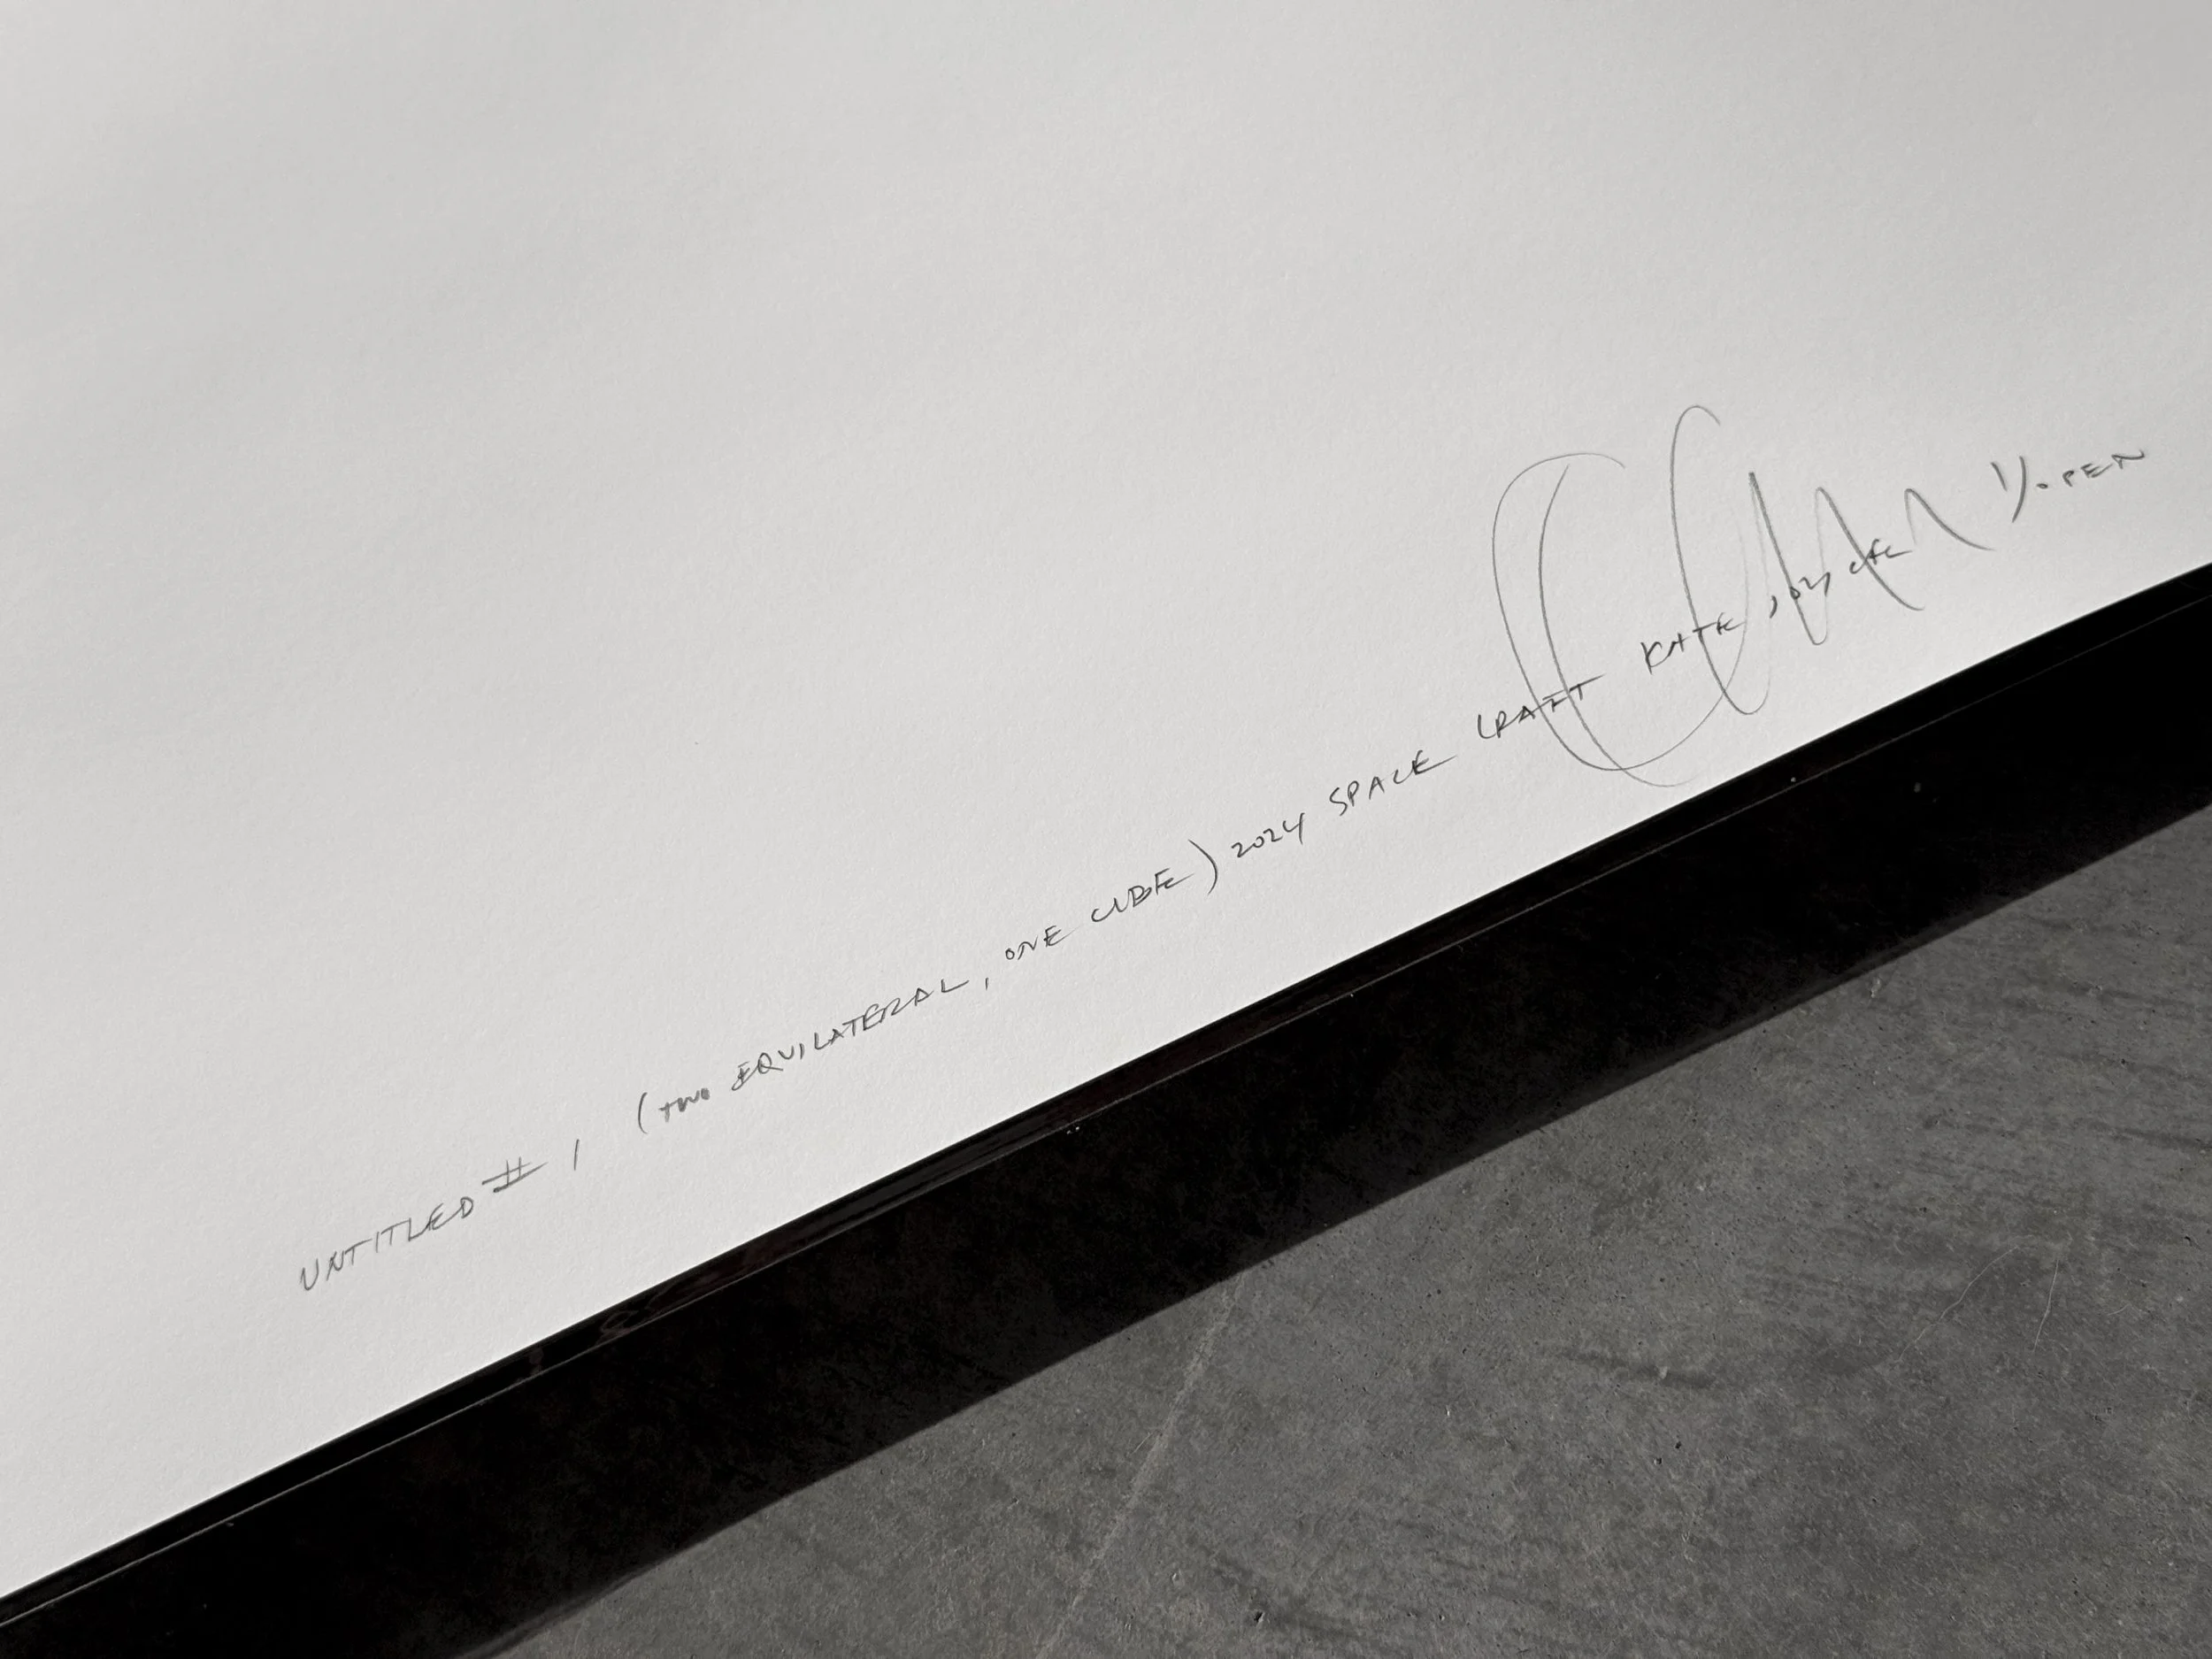 UNTITLED # 1 (TWO EQUILATERAL, ONE CUBE) 2024 SPACE CRAFT KATE JOYCE 1/OPEN